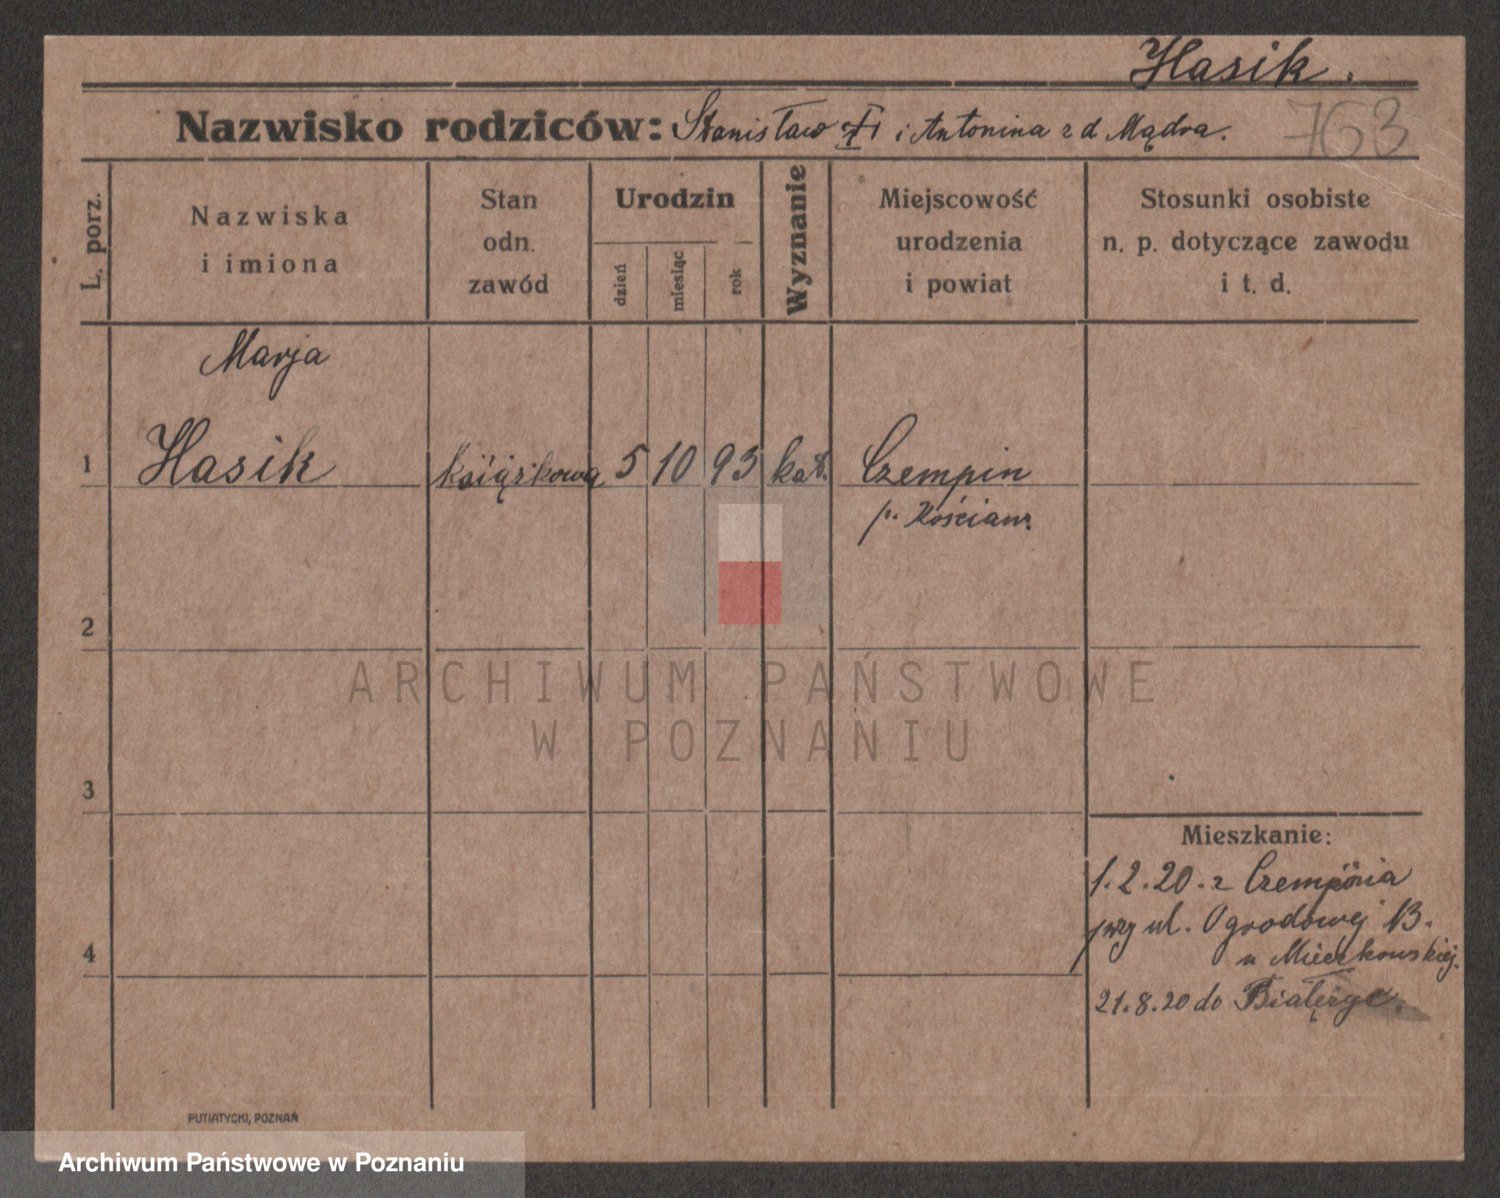 Hasik.
Nazwisko rodziców: Stanisław i Antonina z d Mądra.
763
L. porz.
Nazwiska
i imiona
Stan
odn.
zawód
Urodzin
dzień
miesiąc
rok
Wyznanie
Miejscowość
urodzenia
i powiat
Stosunki osobiste
n. p. dotyczące zawodu
i t. d.
Marja
1 Hasik książkowa 5 10 93 kat. Czempin
p. Kościan.
2
ARCHIWUM PAŃSTWOWE
W POZNANIU
3
Mieszkanie:
1.2.20. z Czempinia
przy ul. Ogrodowej 13.
u Mieczkowskiej.
4
21.8.20 do
PUTIATYCKI, POZNAŃ
Archiwum Państwowe w Poznaniu